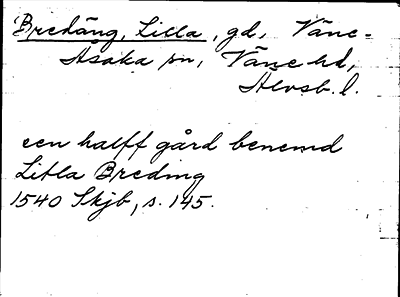 Bredäng, Lilla, gd,Väne-
Åsaka sn, Väne hd,
Älvsb. l.
een halff gård benemd
Litla Breding
1540 Skjb, s. 145.